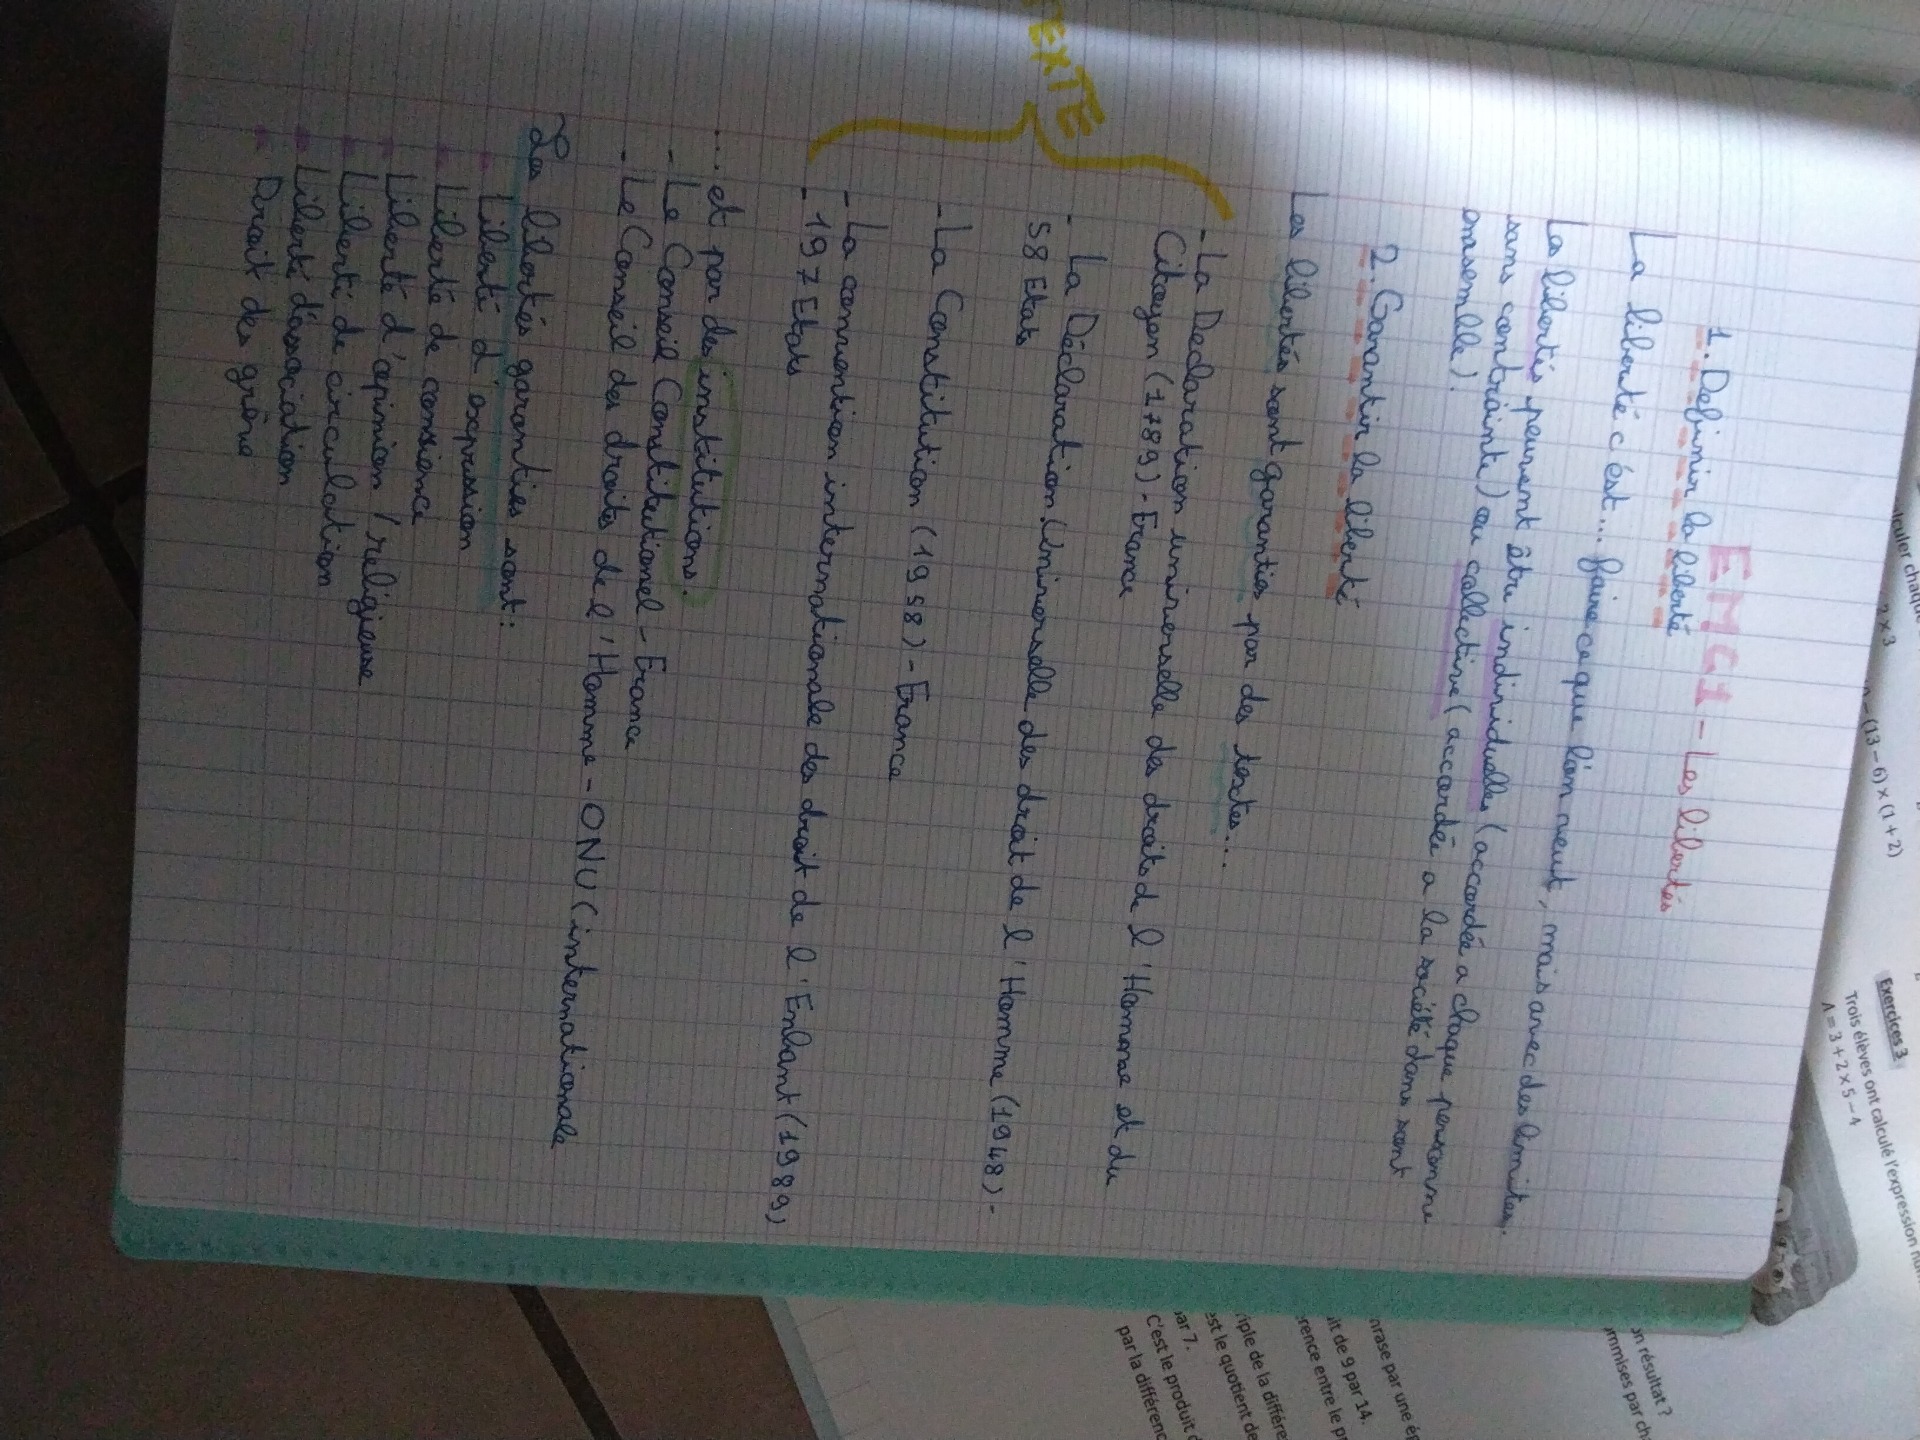 EMC1 - Les libertés
1. Definir la liberté
La liberté c'est... faire ce que l'on veut, mais avec des limites.
Les libertés peuvent être individuelles (accordée a chaque personne
sans contrainte) ou collective (accordée a la société dans sont
ensemble).
2. Garantir la liberté
Les libertés sont garanties par des textes...
TEXTE
- La Declaration universelle des droits de l'Homme et du
Citoyen (1789) - France
- La Déclaration Universelle des droit de l'Homme (1948) -
58 Etats
- La Constitution (1958) - France
- La convention internationale des droit de l'Enfant (1989)
- 197 Etats
... et par des institutions.
- Le Conseil Constitutionel - France
- Le Conseil des droits de l'Homme - ONU (internationale
Les libertés garanties sont :
- Liberté d'expression
- Liberté de consience
- Liberté d'opinion / religieuse
- Liberté de circulation
- Liberté d'association
- Droit des grêve
lculer chaque
2 x 3
– (13 – 6) x (1 + 2)
Exercices 3
Trois élèves ont calculé l'expression
A = 3 + 2 x 5 – 4
on résultat ?
mmises par
hrase par une
it de 9 par 14.
rence entre le
iple de la
est le quotient de
par 7.
C'est le produit
par la